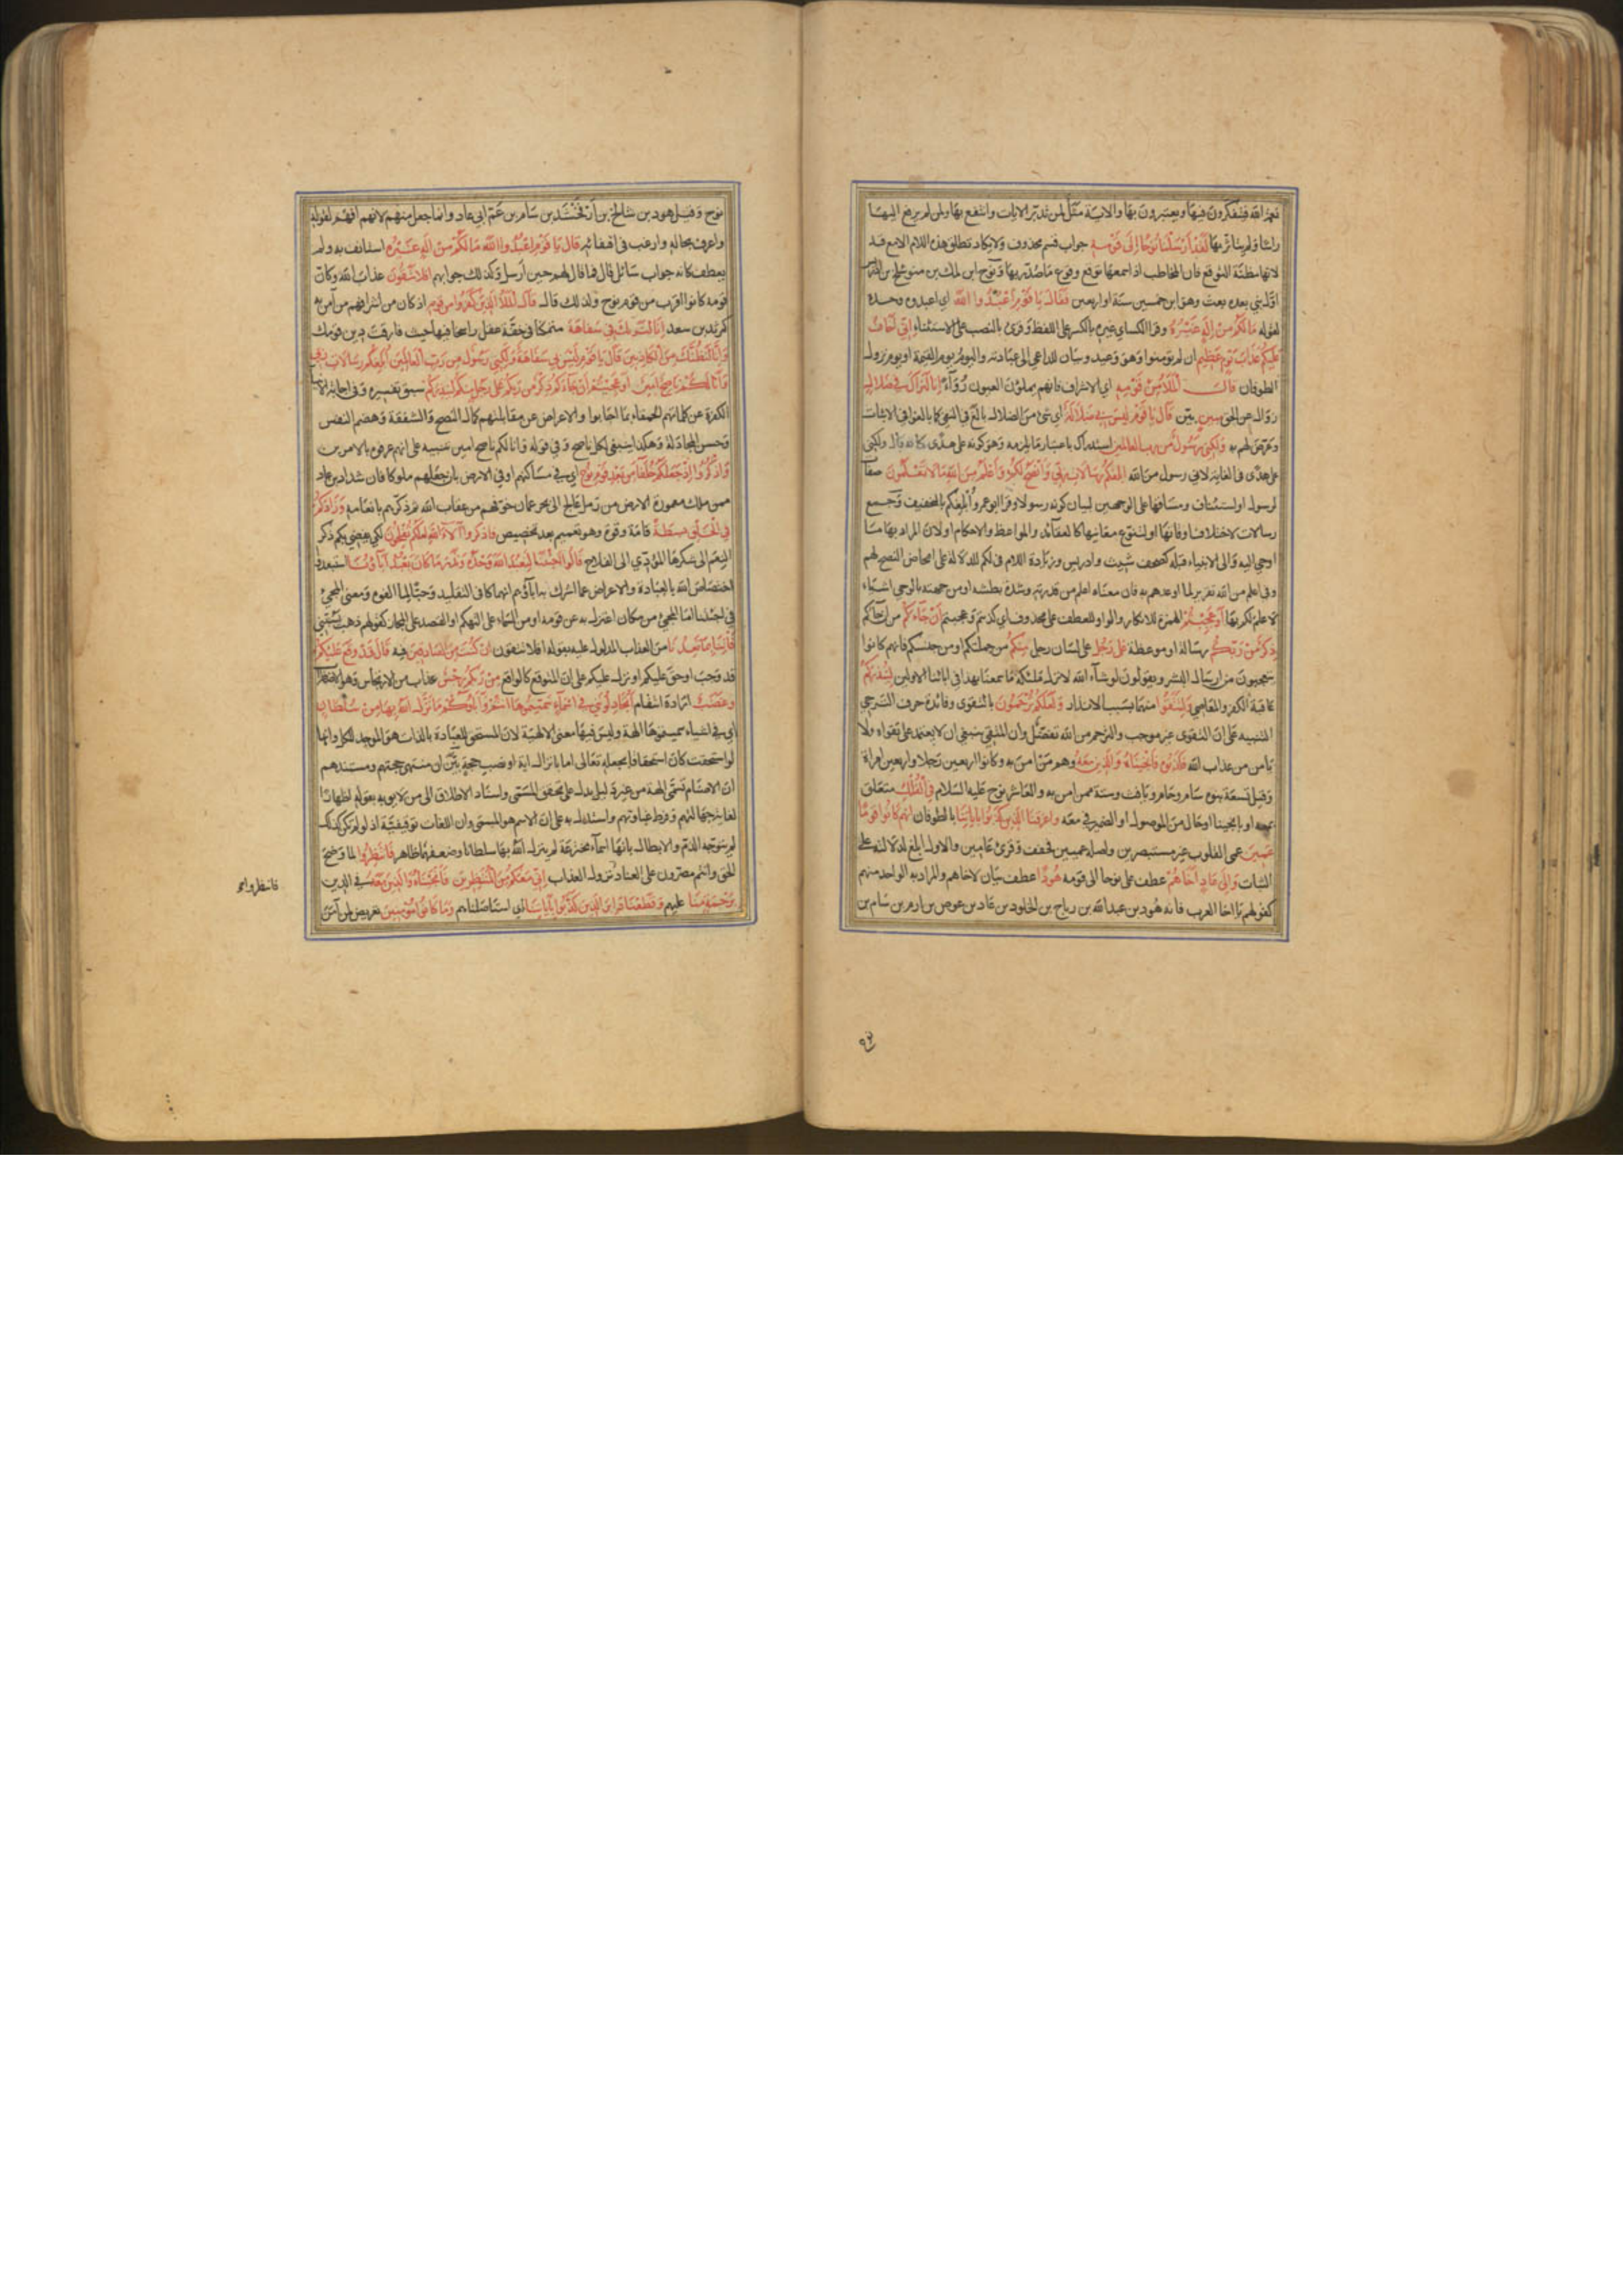 نعمة الله فيتفكرون فيها ويعتبرون بها والاية مثل لمن تدبر الايات وانتفع بها ولمن لم يرفع اليها
راسا ولم يتاثر بها لَقَدْ أَرْسَلْنَا نُوحًا إِلَى قَوْمِهِ جواب قسم محذوف ولا يكاد تطلق هذه اللام الا مع قد
لانها مظنة التوقع فان المخاطب اذا سمعها توقع وقوع ما صدر بها ونوح ابن لمك بن متوشلخ بن ادريس
اول نبي بعده بعث وهو ابن خمسين سنة او اربعين فَقَالَ يَا قَوْمِ اعْبُدُوا اللَّهَ اي اعبدوه وحده
لقوله مَا لَكُمْ مِنْ إِلَهٍ غَيْرُهُ وقرا الكسائي غيره بالكسر على اللفظ وقرئ بالنصب على الاستثناء إِنِّي أَخَافُ
عَلَيْكُمْ عَذَابَ يَوْمٍ عَظِيمٍ ان لم تؤمنوا وهو وعيد وبيان للداعي الى عبادته واليوم يوم القيمة او يوم نزول
الطوفان قَالَ الْمَلَأُ مِنْ قَوْمِهِ اي الاشراف فانهم يملؤن العيون رواء إِنَّا لَنَرَاكَ فِي ضَلَالٍ
زوال عن الحق مُبِينٍ بين قَالَ يَا قَوْمِ لَيْسَ بِي ضَلَالَةٌ اي شئ من الضلال بالغ في النفي كما بالغوا في الاثبات
وعرض لهم به وَلَكِنِّي رَسُولٌ مِنْ رَبِّ الْعَالَمِينَ استدراك باعتبار ما يلزمه وهو كونه على هدى كانه قال ولكني
على هدى في الغاية لاني رسول من الله أُبَلِّغُكُمْ رِسَالَاتِ رَبِّي وَأَنْصَحُ لَكُمْ وَأَعْلَمُ مِنَ اللَّهِ مَا لَا تَعْلَمُونَ صفات
لرسول او استئناف ومساقها على الوجهين لبيان كونه رسولا وقرا ابو عمرو أبلغكم بالتخفيف وجمع
رسالات لاختلاف اوقاتها او لتنوع معانيها كالعقائد والمواعظ والاحكام او لان المراد بها ما
اوحي اليه والى الانبياء قبله كصحف شيث وادريس وزيادة اللام في لكم للدلالة على امحاض النصح لهم
وفي اعلم من الله تقرير لما اوعدهم به فان معناه اعلم من قدرته وشدة بطشه او من جهته بالوحي اشياء
لا علم لكم بها أَوَعَجِبْتُمْ الهمزة للانكار والواو للعطف على محذوف اي اكذبتم وعجبتم أَنْ جَاءَكُمْ من ان جاءكم
ذِكْرٌ مِنْ رَبِّكُمْ رسالة او موعظة عَلَى رَجُلٍ على لسان رجل مِنْكُمْ من جملتكم او من جنسكم فانهم كانوا
يتعجبون من ارسال البشر ويقولون لو شاء الله لانزل ملئكة ما سمعنا بهذا في ابائنا الاولين لِيُنْذِرَكُمْ
عاقبة الكفر والمعاصي وَلِتَتَّقُوا منهما بسبب الانذار وَلَعَلَّكُمْ تُرْحَمُونَ بالتقوى وفائدة حرف الترجي
التنبيه على ان التقوى غير موجب والترحم من الله تفضل وان المتقي ينبغي ان لا يعتمد على تقواه ولا
يامن من عذاب الله فَكَذَّبُوهُ فَأَنْجَيْنَاهُ وَالَّذِينَ مَعَهُ وهم من امن به وكانوا اربعين رجلا واربعين امراة
وقيل تسعة بنوه سام وحام ويافث وستة ممن امن به والعاشر نوح عليه السلام فِي الْفُلْكِ متعلق
بمعه او بانجينا او حال من الموصول او الضمير في معه وَأَغْرَقْنَا الَّذِينَ كَذَّبُوا بِآيَاتِنَا بالطوفان إِنَّهُمْ كَانُوا قَوْمًا
عَمِينَ عمي القلوب غير مستبصرين واصله عميين فخفف وقرئ عامين والاول ابلغ لدلالته على
الثبات وَإِلَى عَادٍ أَخَاهُمْ عطف على نوحا الى قومه هُودًا عطف بيان لاخاهم والمراد به الواحد منهم
كقولهم يا اخا العرب فانه هود بن عبد الله بن رباح بن الخلود بن عاد بن عوص بن ارم بن سام بن
٩٣
نوح وقيل هود بن شالخ بن أرفخشد بن سام بن عم ابي عاد وانما جعل منهم لانهم افهم لقوله
واعرف بحاله وارغب في اقتفائه قَالَ يَا قَوْمِ اعْبُدُوا اللَّهَ مَا لَكُمْ مِنْ إِلَهٍ غَيْرُهُ استانف به ولم
يعطف كانه جواب سائل قال فما قال لهم حين ارسل وكذلك جوابهم أَفَلَا تَتَّقُونَ عذاب الله وكان
قومه كانوا اقرب من قوم نوح ولذلك قال قَالَ الْمَلَأُ الَّذِينَ كَفَرُوا مِنْ قَوْمِهِ اذ كان من اشرافهم من آمن به
كمرثد بن سعد إِنَّا لَنَرَاكَ فِي سَفَاهَةٍ متمكنا في خفة عقل راسخا فيها حيث فارقت دين قومك
وَإِنَّا لَنَظُنُّكَ مِنَ الْكَاذِبِينَ قَالَ يَا قَوْمِ لَيْسَ بِي سَفَاهَةٌ وَلَكِنِّي رَسُولٌ مِنْ رَبِّ الْعَالَمِينَ أُبَلِّغُكُمْ رِسَالَاتِ رَبِّي
وَأَنَا لَكُمْ نَاصِحٌ أَمِينٌ أَوَعَجِبْتُمْ أَنْ جَاءَكُمْ ذِكْرٌ مِنْ رَبِّكُمْ عَلَى رَجُلٍ مِنْكُمْ لِيُنْذِرَكُمْ سبق تفسيره وفي اجابة الانبياء
الكفرة عن كلماتهم الحمقاء بما اجابوا والاعراض عن مقابلتهم كمال النصح والشفقة وهضم النفس
وحسن المجادلة وهكذا ينبغي لكل ناصح وفي قوله وانا لكم ناصح امين تنبيه على انهم عرفوه بالامرين
وَاذْكُرُوا إِذْ جَعَلَكُمْ خُلَفَاءَ مِنْ بَعْدِ قَوْمِ نُوحٍ اي في مساكنهم او في الارض بان جعلهم ملوكا فان شداد بن عاد
ممن ملك معمورة الارض من رمل عالج الى بحر عمان خوفهم من عقاب الله ثم ذكرهم بانعامه وَزَادَكُمْ
فِي الْخَلْقِ بَسْطَةً قامة وقوة وهو تعميم بعد تخصيص فَاذْكُرُوا آلَاءَ اللَّهِ لَعَلَّكُمْ تُفْلِحُونَ لكي يفضي بكم ذكر
النعم الى شكرها المؤدي الى الفلاح قَالُوا أَجِئْتَنَا لِنَعْبُدَ اللَّهَ وَحْدَهُ وَنَذَرَ مَا كَانَ يَعْبُدُ آبَاؤُنَا استبعدوا
اختصاص الله بالعبادة والاعراض عما اشرك به اباؤهم انهماكا في التقليد وحبا لما الفوه ومعنى المجئ
في اجئتنا اما المجئ من مكان اعتزل به عن قومه او من السماء على التهكم او القصد على المجاز كقولهم ذهب يسبني
فَأْتِنَا بِمَا تَعِدُنَا من العذاب المدلول عليه بقوله افلا تتقون إِنْ كُنْتَ مِنَ الصَّادِقِينَ فيه قَالَ قَدْ وَقَعَ عَلَيْكُمْ
قد وجب او حق عليكم او نزل عليكم على ان المتوقع كالواقع مِنْ رَبِّكُمْ رِجْسٌ عذاب من الارتجاس وهو الاضطراب
وَغَضَبٌ ارادة انتقام أَتُجَادِلُونَنِي فِي أَسْمَاءٍ سَمَّيْتُمُوهَا أَنْتُمْ وَآبَاؤُكُمْ مَا نَزَّلَ اللَّهُ بِهَا مِنْ سُلْطَانٍ
اي في اشياء سميتموها الهة وليس فيها معنى الالهية لان المستحق للعبادة بالذات هو الموجد للكل وانها
لو استحقت كان استحقاقها بجعله تعالى اما بانزال اية او نصب حجة بين ان منتهى حجتهم ومستندهم
ان الاصنام تسمى الهة من غير دليل يدل على تحقق المسمى واسناد الاطلاق الى من لا يوبه بقوله اظهارا
لغاية جهالتهم وفرط غباوتهم واستدل به على ان الاسم هو المسمى وان اللغات توقيفية اذ لو لم تكن كذلك
لم يتوجه الذم والابطال بانها اسماء مخترعة لم ينزل الله بها سلطانا وضعفهما ظاهر فَانْتَظِرُوا لما وضح
الحق وانتم مصرون على العناد نزول العذاب إِنِّي مَعَكُمْ مِنَ الْمُنْتَظِرِينَ فَأَنْجَيْنَاهُ وَالَّذِينَ مَعَهُ في الدين
بِرَحْمَةٍ مِنَّا عليهم وَقَطَعْنَا دَابِرَ الَّذِينَ كَذَّبُوا بِآيَاتِنَا اي استاصلناهم وَمَا كَانُوا مُؤْمِنِينَ تعريض لمن آمن